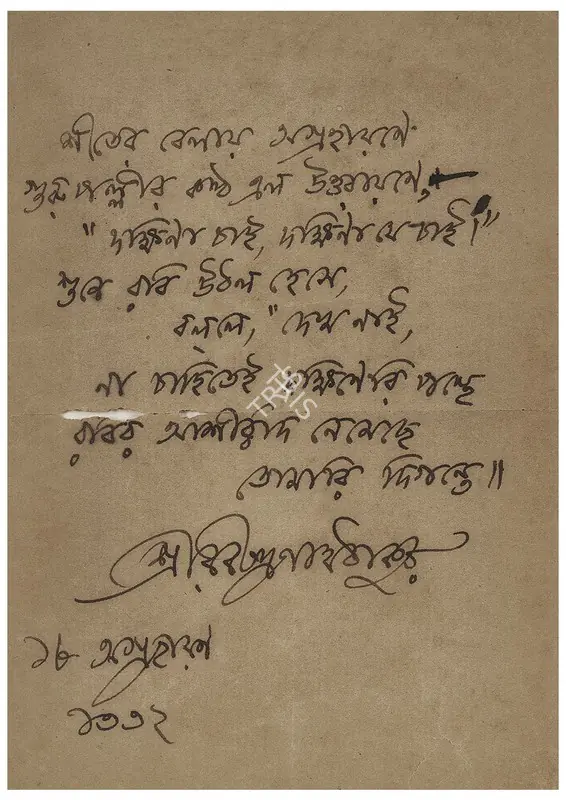 শীতের বেলায় অগ্রহায়ণে
গুরুপল্লীর কণ্ঠ এল উত্তরায়ণে,
"দক্ষিণা চাই, দক্ষিণা যে চাই।"
শুনে রবি উঠল হেসে,
বললে, "দেখ নাই,
না চাহিতেই দক্ষিণেরি পন্থে
রবির আশীর্ব্বাদ নেমেছে
তোমারি দিগন্তে॥
শ্রীরবীন্দ্রনাথ ঠাকুর
১৮ অগ্রহায়ণ
১৩৩২